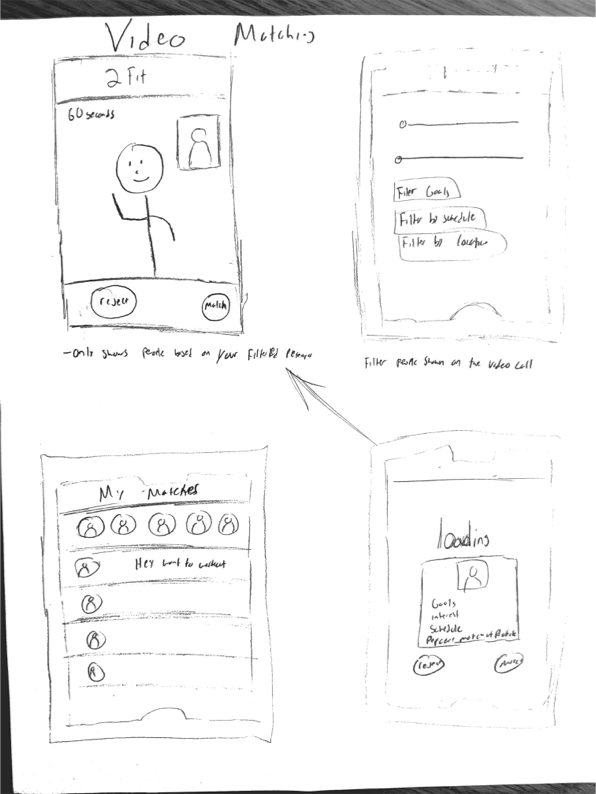 Video Matching
2 Fit
60 seconds
reject
match
-only shows people based on your filtered
Filter Goals
Filter by schedule
Filter by location
Filter people shown on the video call
My Matches
Hey want to workout
loading
Goals
interest
Schedule
Percent match
reject